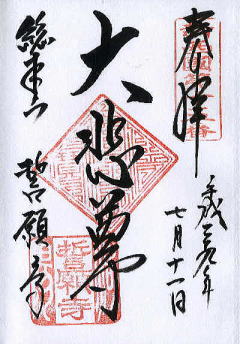 奉拝
平成 年
七月十一日
大悲尊
総本山 誓願寺
誓願寺